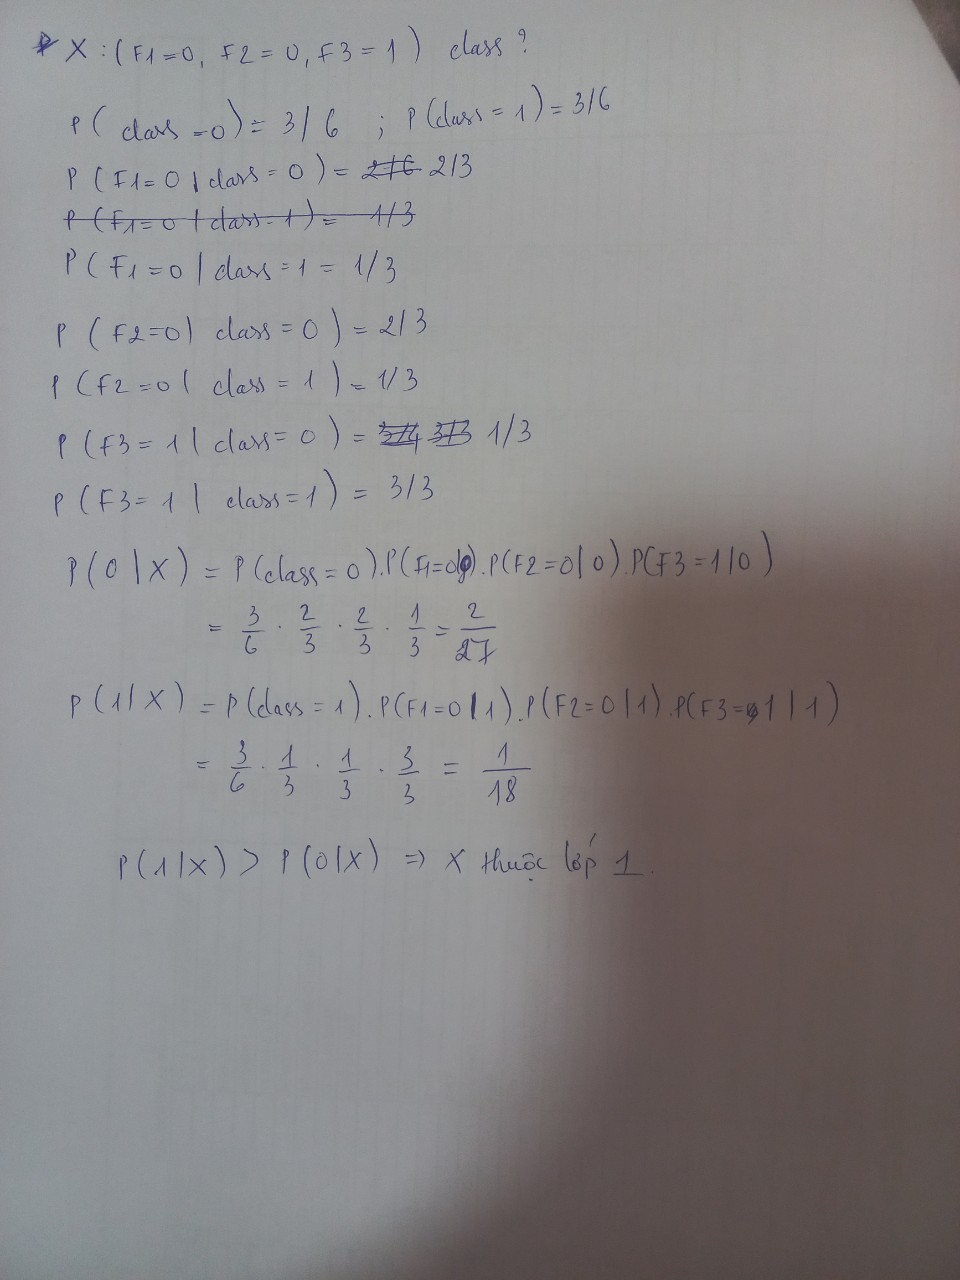 * X : ( F1 = 0, F2 = 0, F3 = 1 ) class ?
P( class = 0) = 3/6 ; P(class = 1) = 3/6
P ( F1 = 0 | class = 0 ) = 2/6 2/3
P ( F1 = 0 | class = 1 ) = 1/3
P ( F1 = 0 | class = 1 = 1/3
P ( F2 = 0 | class = 0 ) = 2/3
P ( F2 = 0 | class = 1 ) = 1/3
P ( F3 = 1 | class = 0 ) = 3/4 3/3 1/3
P ( F3 = 1 | class = 1 ) = 3/3
P ( 0 | X ) = P (class = 0). P( F1 = 0|0). P(F2 = 0 | 0). P(F3 = 1 | 0 )
= 3/6 . 2/3 . 2/3 . 1/3 = 2/27
P ( 1 | X ) = P (class = 1). P(F1 = 0 | 1). P(F2 = 0 | 1). P(F3 = 1 | 1 )
= 3/6 . 1/3 . 1/3 . 3/3 = 1/18
P ( 1 | X ) > P ( 0 | X ) => X thuộc lớp 1.